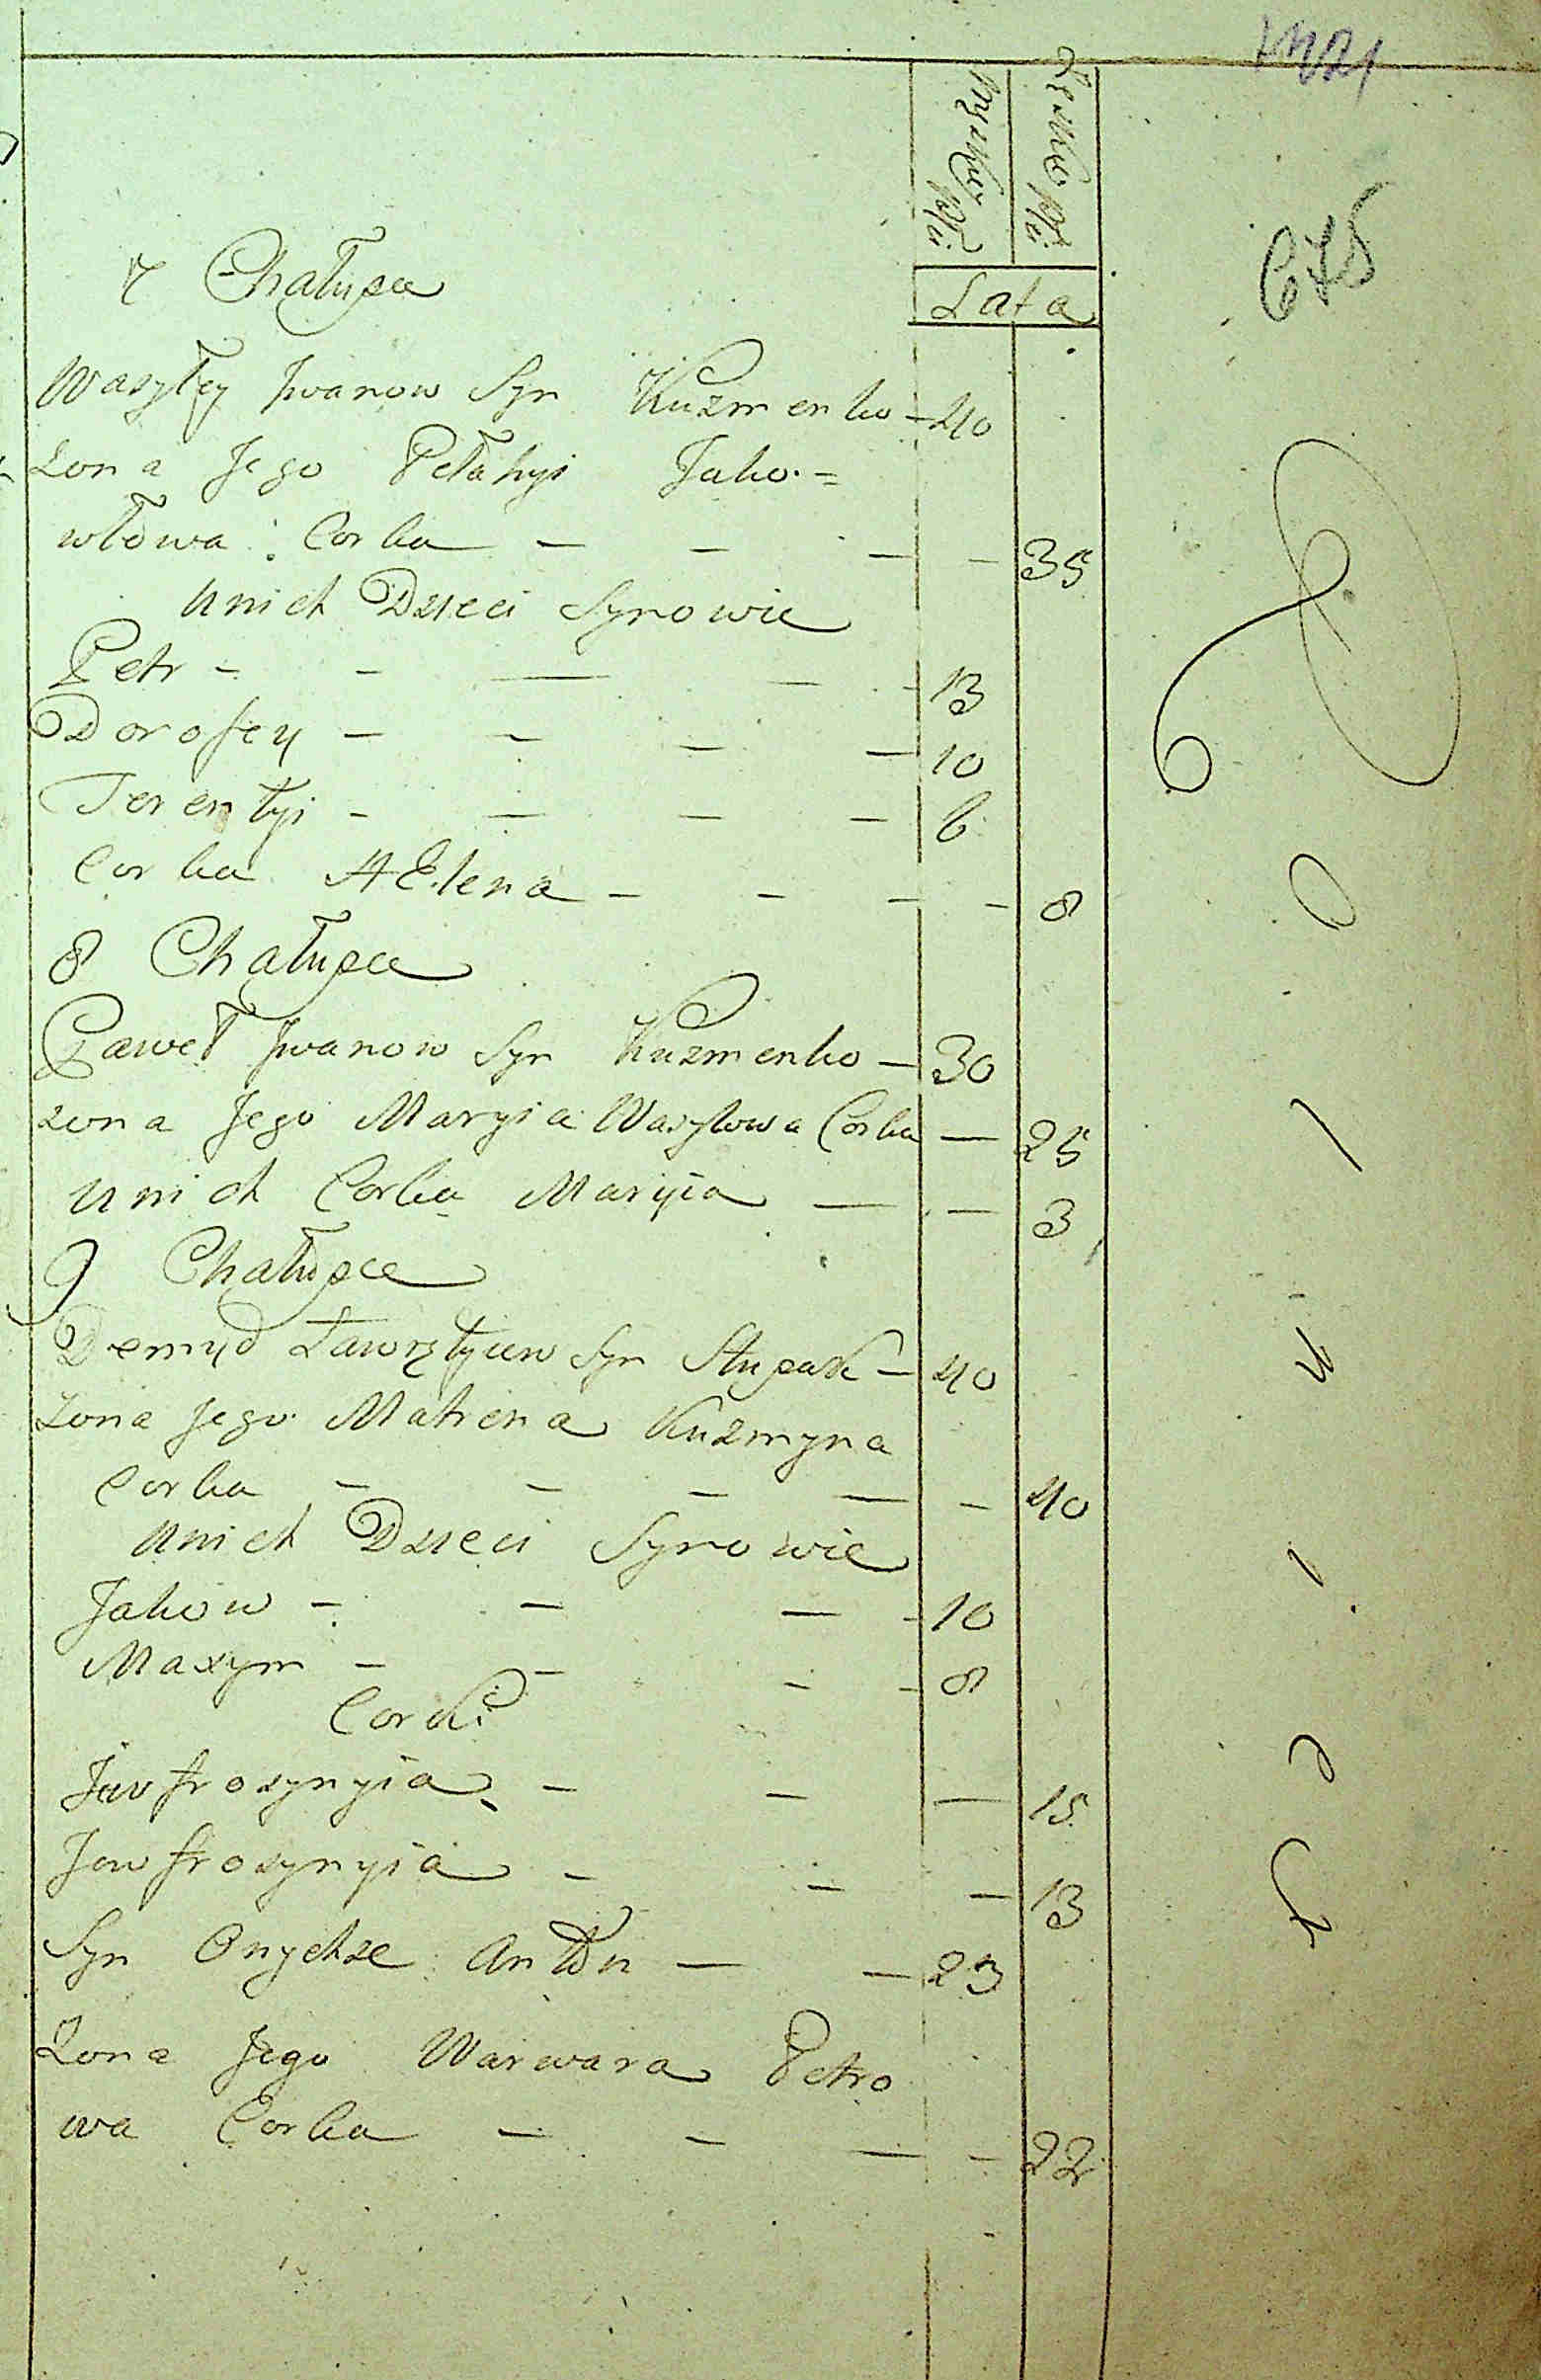 Męzkiej płci
Żeńskiej płci
Lata
675
7 Chałupa
Wasyłey Jwanow Syn Kuzmenko - 40
Zona Jego Pełahyi Jako=
włowa Corka - - - - 35
unich Dzieci Synowie
Petr - - - - - 13
Dorofey - - - - 10
Terentyi - - - - 6
Corka HElena - - - - 8
8 Chałupa
Paweł Jwanow Syn Kuzmenko - 30
zona Jego Maryia Wasylowa Corka - 25
unich Corka Maryia - - 3
9 Chałupa
Demyd Syn Stupak - 40
Zona Jego Matrena Kuzmyna
Corka - - - - - 40
unich Dzieci Synowie
Jakow - - - - 10
Maxym - - - - 8
Corki
Jewfrosynyia - - - 15
Jewfrosynyia - - - 13
Syn Onychże Anton - - 23
Zona Jego Warwara Petro
wa Corka - - - - 22